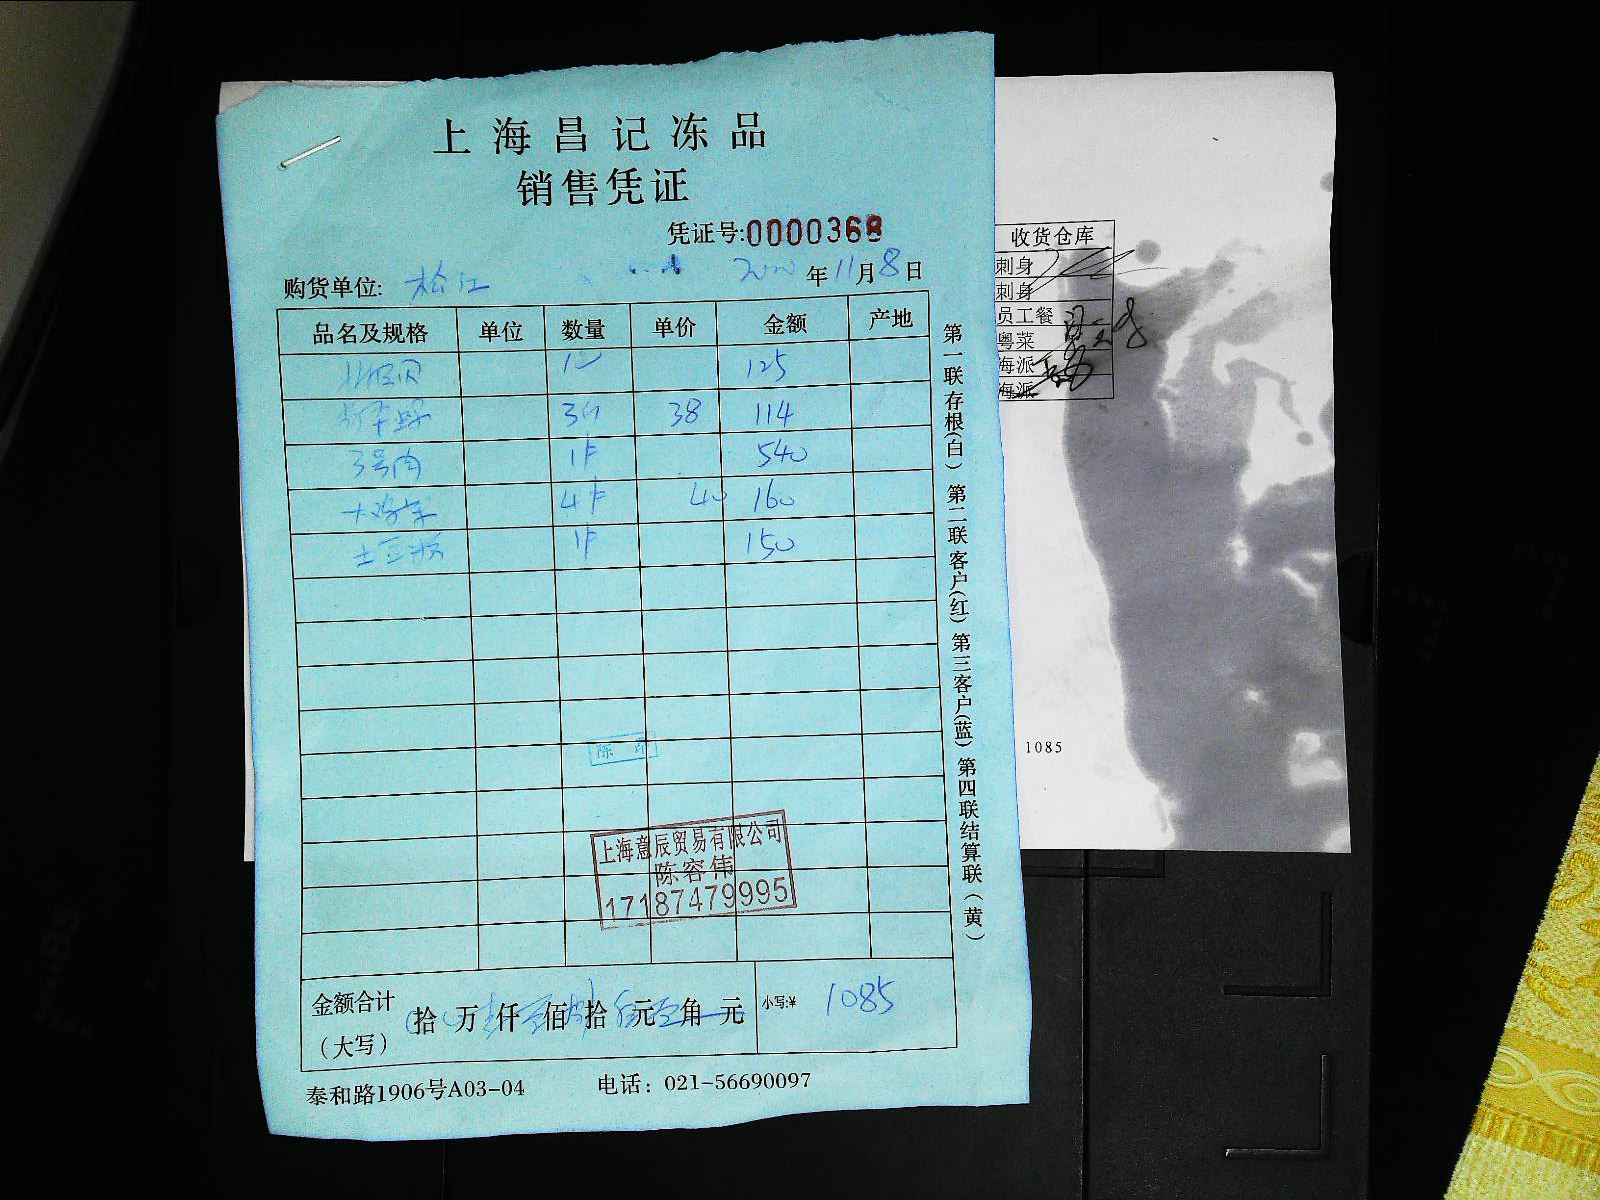 上海昌记冻品
销售凭证
凭证号:0000368
购货单位: 松江 年11月8日
品名及规格 单位 数量 单价 金额 产地
北极贝 125
38 114
3号肉 1件 540
4件 40 160
1件 150
陈
上海意辰贸易有限公司
陈容伟
17187479995
金额合计
(大写) 拾 万 仟 佰 拾 元 角 元 小写:¥ 1085
泰和路1906号A03-04 电话: 021-56690097
第一联存根(白) 第二联客户(红) 第三客户(蓝) 第四联结算联(黄)
收货仓库
刺身
刺身
员工餐
粤菜
海派
海派
1085